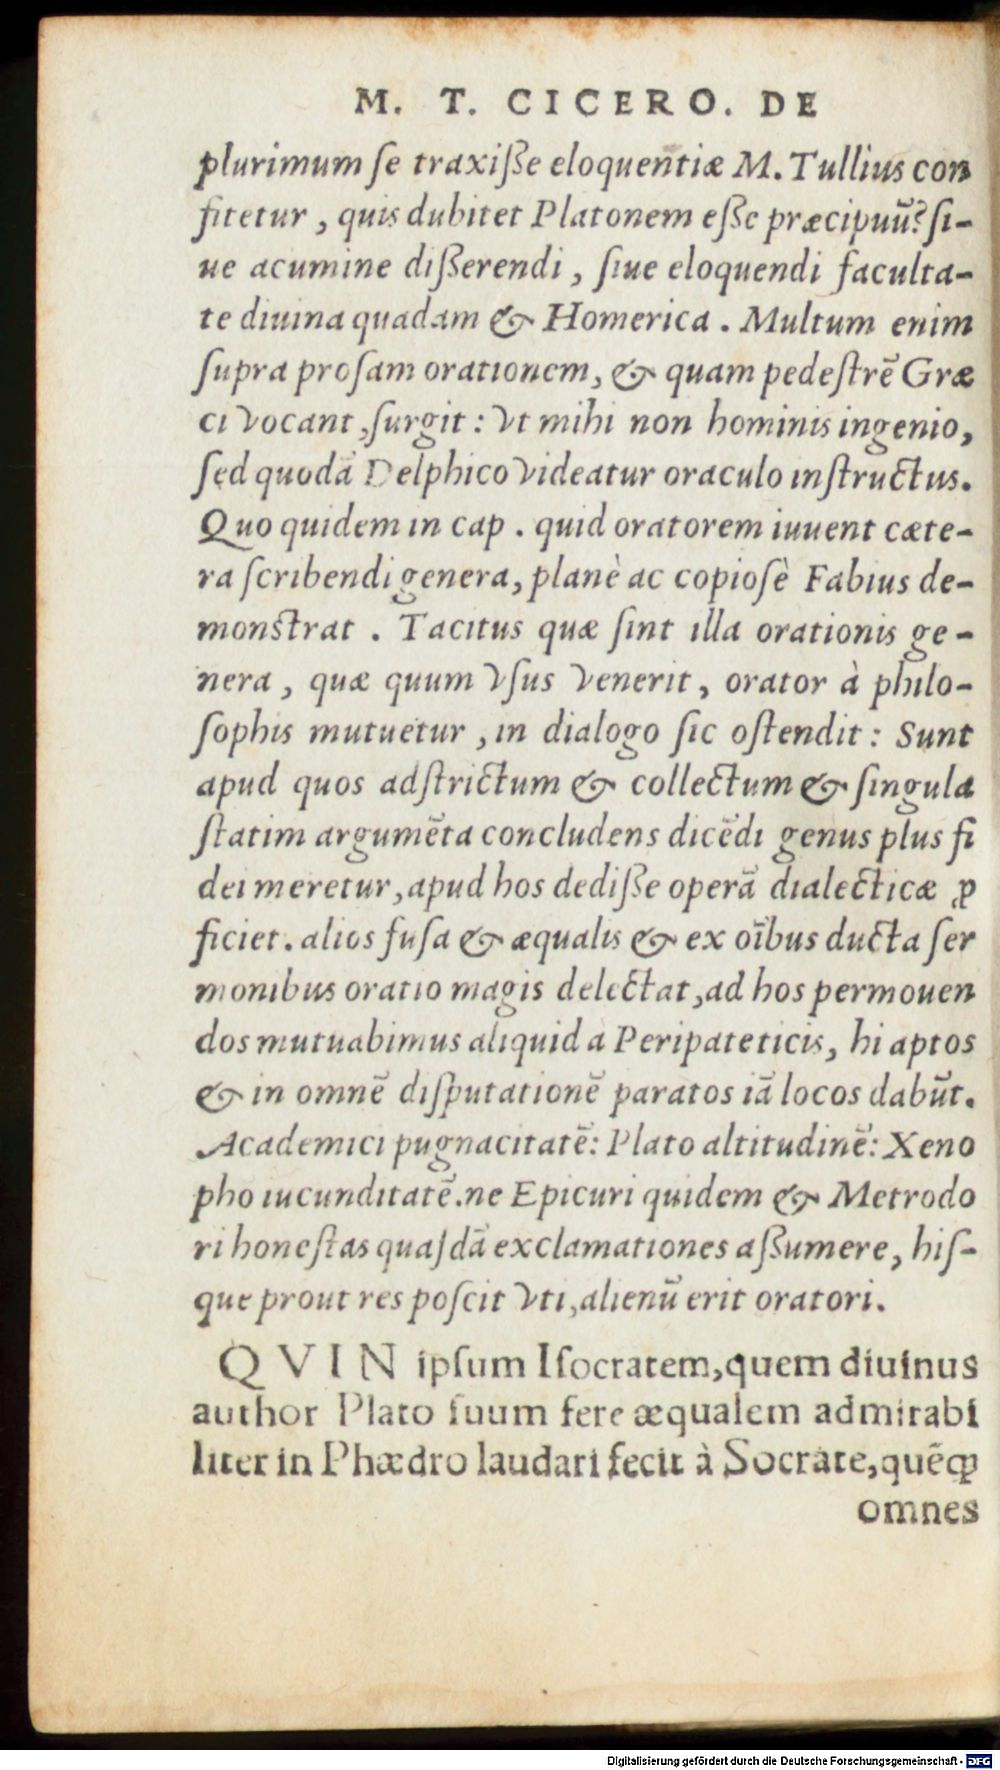 M. T. CICERO. DE
plurimum ſe traxiſſe eloquentiæ M. Tullius con
fitetur, quis dubitet Platonem eſſe præcipuū? ſi-
ue acumine diſſerendi, ſiue eloquendi faculta-
te diuina quadam & Homerica. Multum enim
ſupra proſam orationem, & quam pedeſtrē Græ
ci vocant, ſurgit: vt mihi non hominis ingenio,
ſed quodā Delphico videatur oraculo inſtructus.
Quo quidem in cap. quid oratorem iuuent cæte-
ra ſcribendi genera, planè ac copioſè Fabius de-
monſtrat. Tacitus quæ ſint illa orationis ge-
nera, quæ quum vſus venerit, orator à philo-
ſophis mutuetur, in dialogo ſic oſtendit: Sunt
apud quos adſtrictum & collectum & ſingula
ſtatim argumēta concludens dicēdi genus plus fi
dei meretur, apud hos dediſſe operā dialecticæ ꝓ
ficiet. alios fuſa & æqualis & ex oībus ducta ſer
monibus oratio magis delectat, ad hos permouen
dos mutuabimus aliquid a Peripateticis, hi aptos
& in omnē diſputationē paratos iā locos dabūt.
Academici pugnacitatē: Plato altitudinē: Xeno
pho iucunditatē. ne Epicuri quidem & Metrodo
ri honeſtas quaſdā exclamationes aſſumere, hiſ-
que prout res poſcit vti, alienū erit oratori.
QVIN ipſum Iſocratem, quem diuinus
author Plato ſuum fere æqualem admirabi
liter in Phædro laudari fecit à Socrate, quēꝗ
omnes
Digitalisierung gefördert durch die Deutsche Forschungsgemeinschaft - DFG